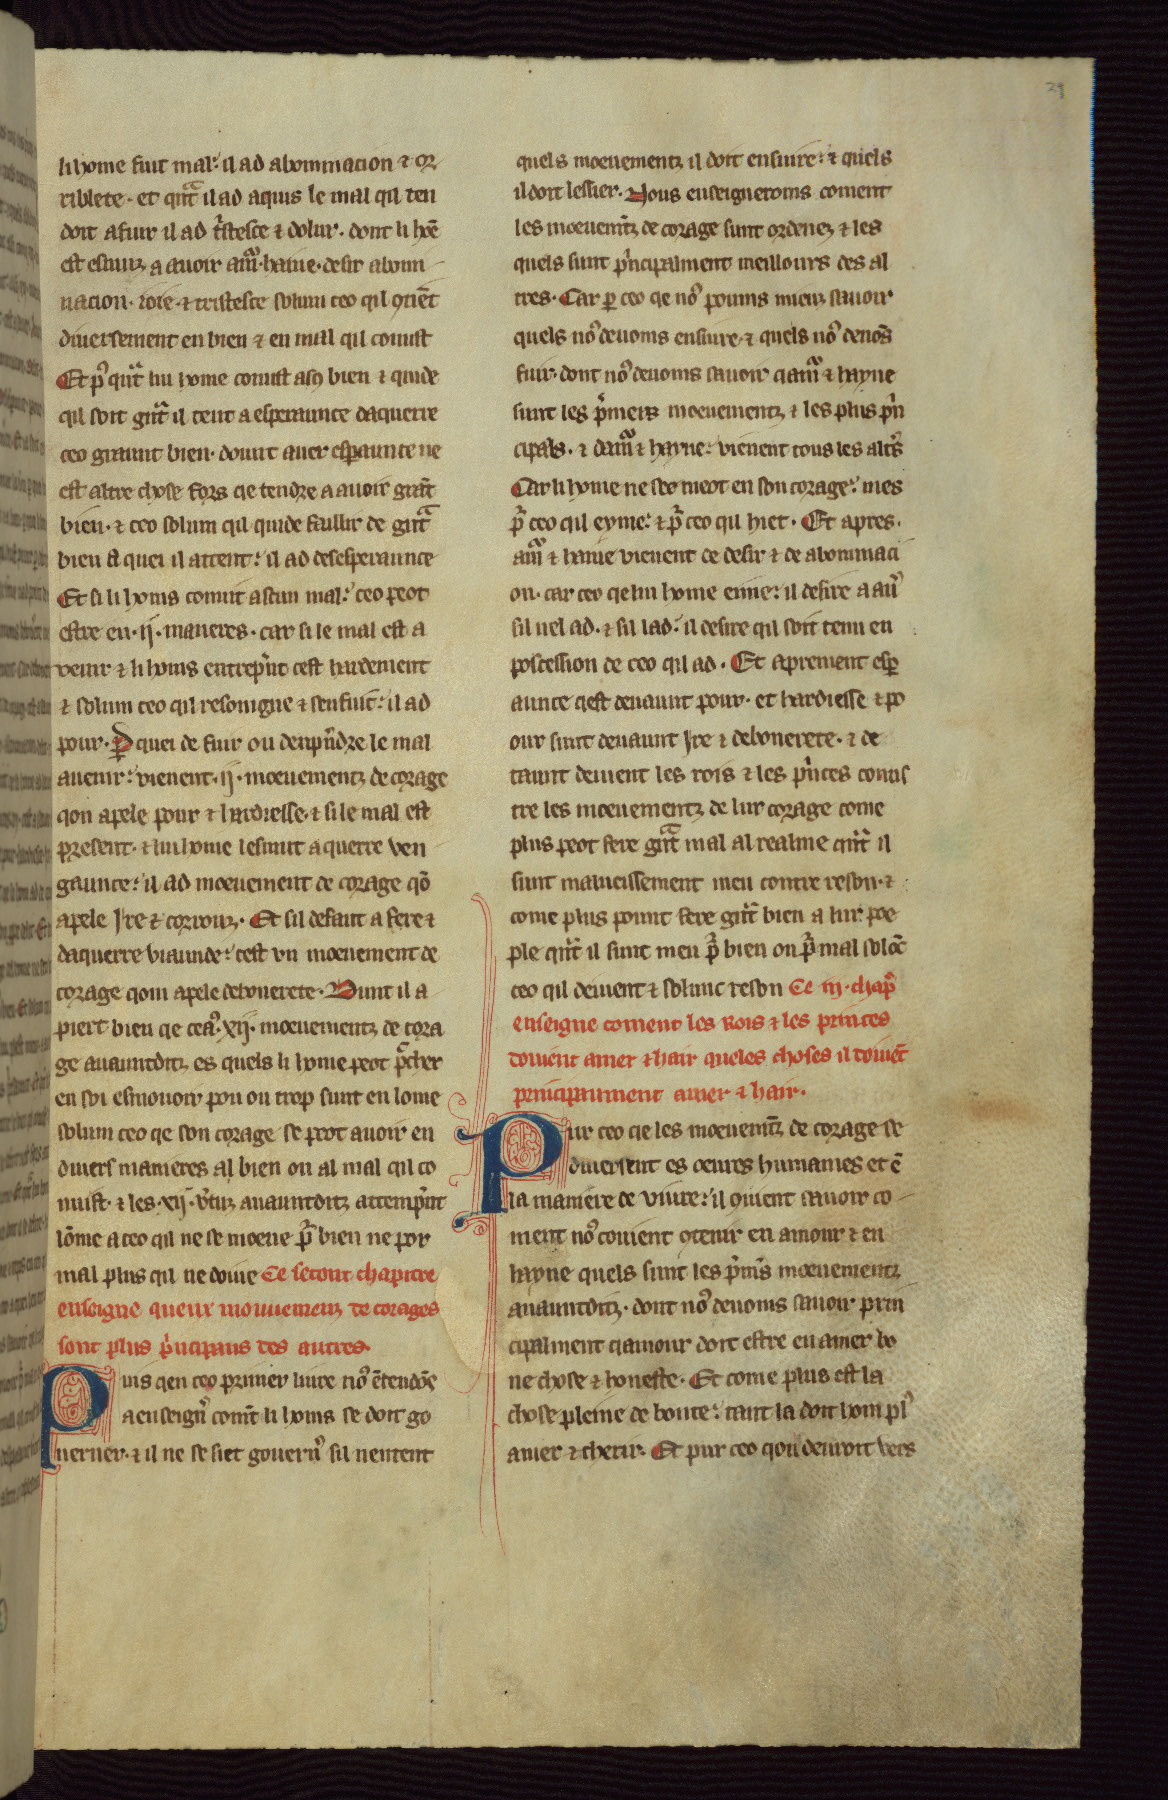 29
li home fuit mal: il ad abominacion & or
riblete. et qñt il ad aquis le mal qil ten
doit a fuir il ad tͥstesce & dolur. dont li hõe
est estauz a avoir amͦ haine. desir abomi-
nacion. ioie. & tristesce solum ceo qil 9tiẽt
diversement en bien & en mal qil conust
Et pͥ qñt lui home conust asꝯ bien & quide
qil soit gñt il tent a esperaunce daquerre
ceo graunt bien. dount aver esꝑaunce ne
est altre chose fors qe tendre a avoir grãt
bien. & ceo solum qil quide faillir de gñt
bien a quei il attent: il ad desesperaunce
Et si li homs conuit ascun mal: ceo peot
estre en .ij. maneres. car si le mal est a
venir & li homs entrepͥnt cest hardement
& solum ceo qil resoingne & sen fuit: il ad
pour. Ꝑ quei de fuir ou denpͥndre le mal
avenir: vienent .ij. moevementz de corage
qon apele pour & hardiesse. & si le mal est
present. & lui home lesmut a querre ven-
gaunce: il ad moevement de corage qõ
apele Ire & corrouz. Et sil defaut a fere &
daquerre viaunde: cest un moevement de
corage qom apele debonerete. Dunt il a
piert bien qe ceaͦ .xij. moevementz de cora
ge avauntditz es quels li home peot pͣcher
en soi esmovoir pou ou trop sunt en lome
solum ceo qe son corage se peot avoir en
divers manieres al bien ou al mal qil co
nuist. & les .xij. vͥtuz avauntditz attempͥnt
lõme a ceo qil ne se moeve pͥ bien ne por
mal plus qil ne doive Ce secont chapitre
enseigne queux mouvementz de corages
sont plus pͥncipaus des autres.
Puis qen ceo primer livre noͦ ẽtendõs
a enseignͥ comẽt li homs se doit go
verner. & il ne se siet governͥ sil nentent
quels moevementz il doit ensuire: & quels
il doit lessier. Nous enseigneroms coment
les moevemẽtz de corage sunt ordenez & les
quels sunt pͥncipalment meillours des al
tres. Car ꝑ ceo qe noͦ poums mieuz savoir
quels noͦ devoms ensuire. & quels noͦ devõs
fuir. dont noͦ devoms savoir qamͦ & hayne
sunt les pͥmers moevementz & les plus pͥn
cipals. & damͦ & hayne: vienent tous les altͥs
Car li home ne seo meot en son corage: mes
pͥ ceo qil eyme: & pͥ ceo qil hiet. Et apres.
amͦ & haine vienent de desir & de abominaci
on. car ceo qe lui home eime: il desire a avͥ
sil nel ad. & sil lad: il desire qil soit tenu en
poscession de ceo qil ad. Et aprement esꝑ
aunce qest devaunt pour. et hardiesse & po
our sunt devaunt Ire & debonerete. & de
taunt deivent les rois & les pͥnces conus
tre les moevementz de lur corage come
plus peot fere gñt mal al realme qñt il
sunt malveissement meu contre reson. &
come plus pount fere gñt bien a lur poe
ple qñt il sunt meu pͥ bien ou pͥ mal solõc
ceo qil deivent & solunc reson Ce .iij. chapͥ
enseigne coment les Rois & les princes
doivent amer & hair queles choses il doivẽt
principaument amer & hair.
Pur ceo qe les moevemẽtz de corage se
diversent es oeures humaines et ẽ
la maniere de vivre: il 9vient savoir co-
ment noͦ covient 9tenir en amour & en
hayne quels sunt les pͥmͥs moevementz
avauntditz. dont noͦ devoms savoir prin
cipalment qamour doit estre en amer bo
ne chose & honeste. Et come plus est la
chose pleine de bonte: tant la doit hom plͥ
amer & cherir. Et pur ceo qon devroit vers